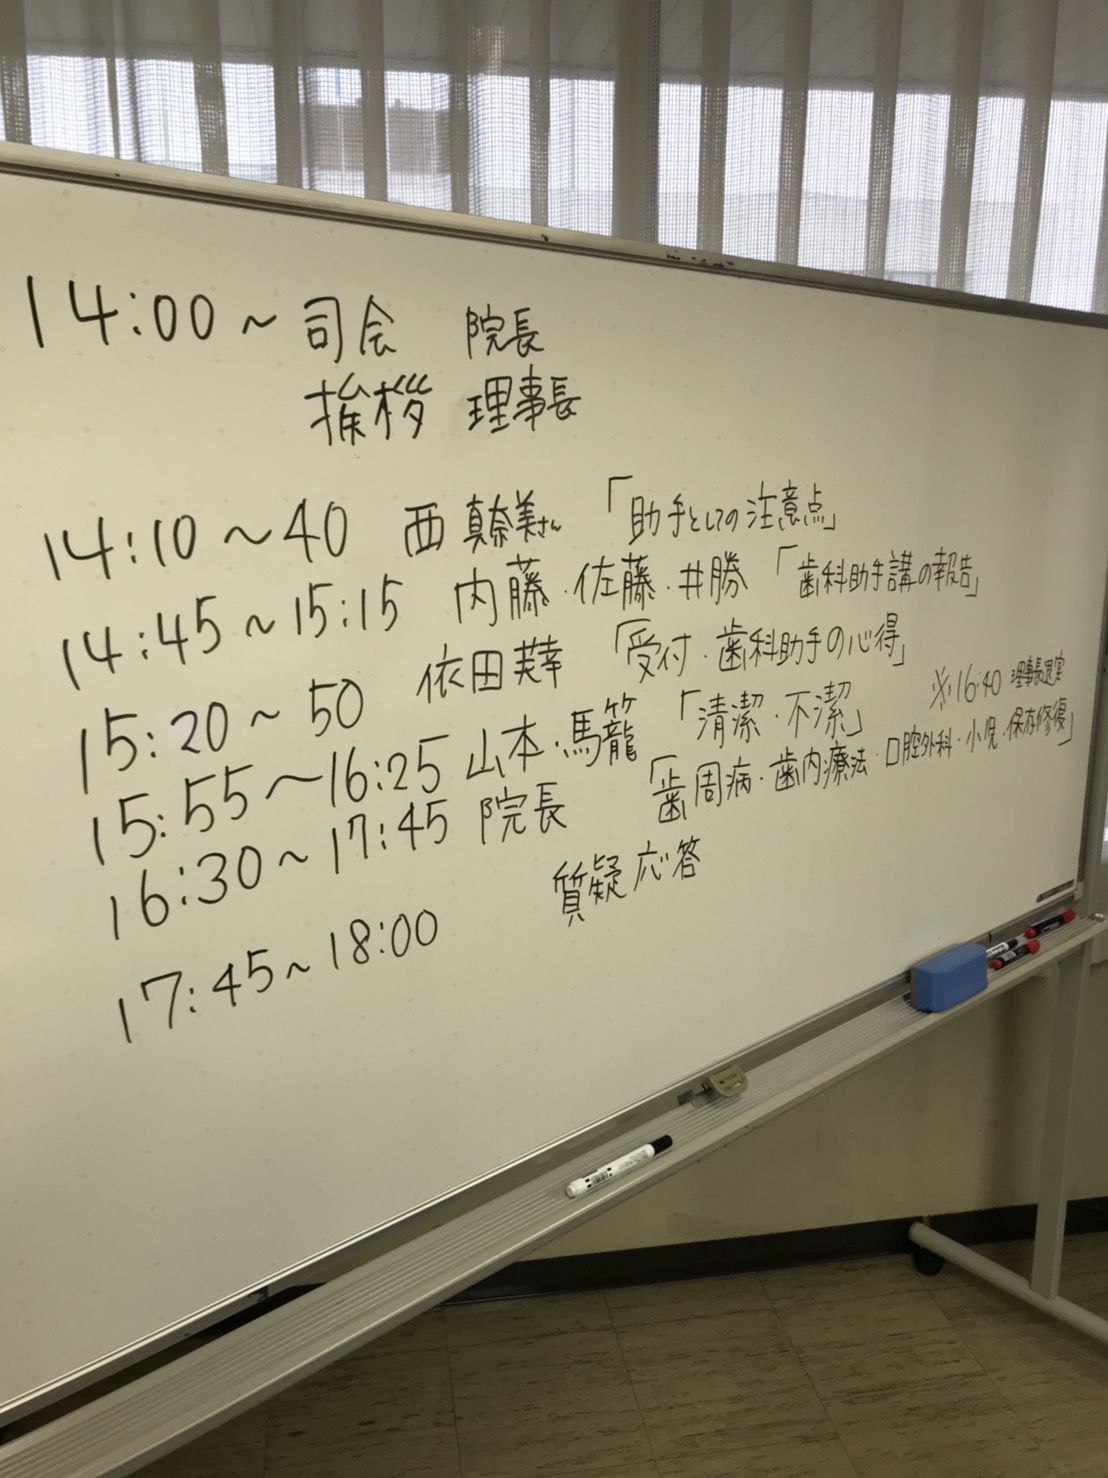 14:00～ 司会 院長
挨拶 理事長
14:10～40 西 真奈美さん 「助手としての注意点」
14:45～15:15 内藤・佐藤・井勝 「歯科助手講の報告」
15:20～50 依田 「受付・歯科助手の心得」
15:55～16:25 山本・馬籠 「清潔・不潔」
※16:40 理事長退室
16:30～17:45 院長 「歯周病・歯内療法・口腔外科・小児・保存修復」
17:45～18:00 質疑応答